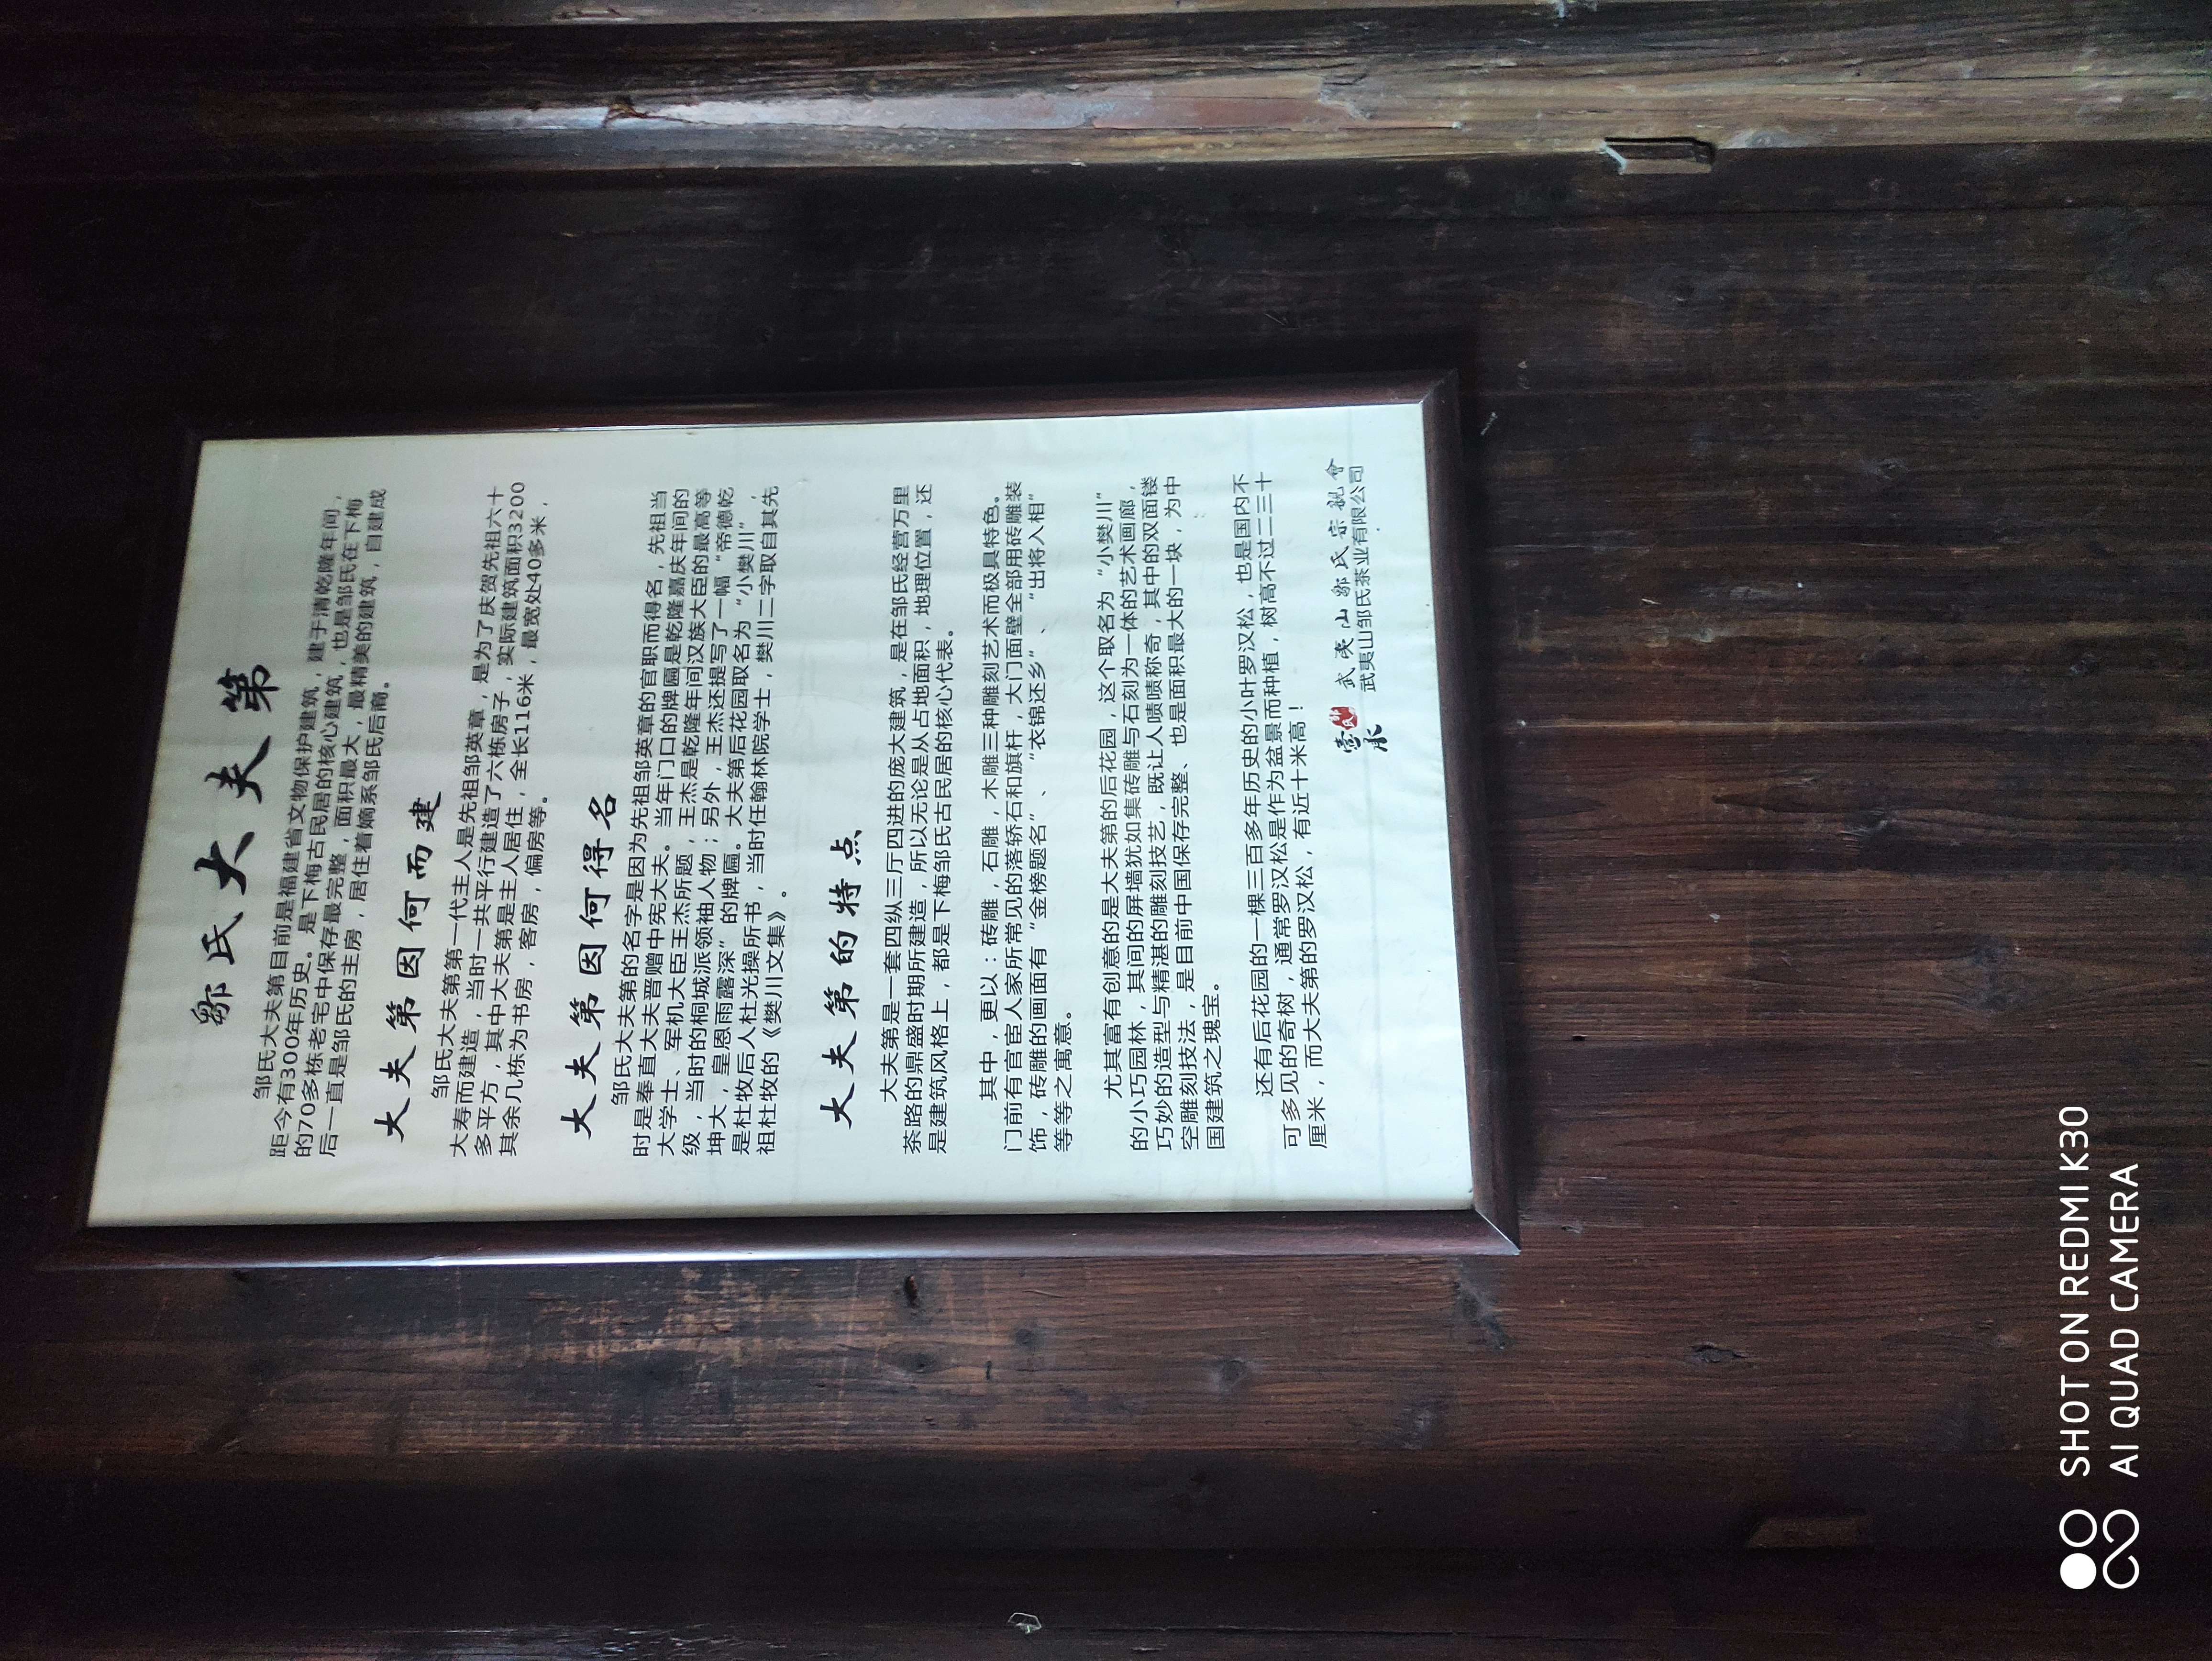 邹氏大夫第
邹氏大夫第目前是福建省文物保护建筑，建于清乾隆年间，
距今有300年历史。是下梅古民居的核心建筑，也是邹氏在下梅
的70多栋老宅中保存最完整，面积最大，最精美的建筑，自建成
后一直是邹氏的主房，居住着嫡系邹氏后裔。
大夫第因何而建
邹氏大夫第第一代主人是先祖邹英章，是为了庆贺先祖六十
大寿而建造，当时一共平行建造了六栋房子，实际建筑面积3200
多平方，其中大夫第是主人居住，全长116米，最宽处40多米，
其余几栋为书房，客房，偏房等。
大夫第因何得名
邹氏大夫第的名字是因为先祖邹英章的官职而得名，先祖当
时是奉直大夫晋赠中宪大夫。当年门口的牌匾是乾隆嘉庆年间的
大学士、军机大臣王杰所题，王杰是乾隆年间汉族大臣的最高等
级，当时的桐城派领袖人物；另外，王杰还提写了一幅“帝德乾
坤大，皇恩雨露深”的牌匾。大夫第后花园取名为“小樊川”，
是杜牧后人杜光操所书，当时任翰林院学士，樊川二字取自其先
祖杜牧的《樊川文集》。
大夫第的特点
大夫第是一套四纵三厅四进的庞大建筑，是在邹氏经营万里
茶路的鼎盛时期所建造，所以无论是从占地面积，地理位置，还
是建筑风格上，都是下梅邹氏古民居的核心代表。
其中，更以：砖雕，石雕，木雕三种雕刻艺术而极具特色。
门前有官宦人家所常见的落轿石和旗杆，大门面壁全部用砖雕装
饰，砖雕的画面有“金榜题名”、“衣锦还乡”、“出将入相”
等等之寓意。
尤其富有创意的是大夫第的后花园，这个取名为“小樊川”
的小巧园林，其间的屏墙犹如集砖雕与石刻为一体的艺术画廊，
巧妙的造型与精湛的雕刻技艺，既让人啧啧称奇，其中的双面镂
空雕刻技法，是目前中国保存完整、也是面积最大的一块，为中
国建筑之瑰宝。
还有后花园的一棵三百多年历史的小叶罗汉松，也是国内不
可多见的奇树，通常罗汉松是作为盆景而种植，树高不过二三十
厘米，而大夫第的罗汉松，有近十米高！
武夷山鄒氏宗親會
武夷山邹氏茶业有限公司
SHOT ON REDMI K30
AI QUAD CAMERA